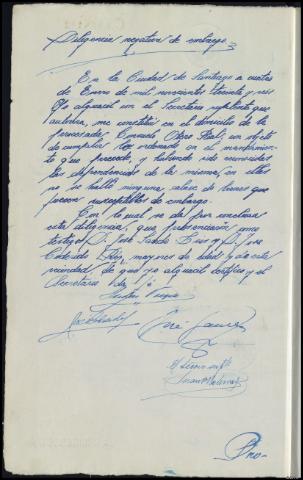 Diligencia negativa de embargo
En la Ciudad de Santiago a cuatro
de Enero de mil novecientos treinta y seis
Yo alguacil con el Secretario suplente que
autoriza, me constituí en el domicilio de la
procesada Consuelo, con objeto
de cumplir lo ordenado en el mandamiento
que precede, y habiendo sido reconocidas
las dependencias de la misma, en ellas
no se halló ninguna clase de bienes que
fuesen susceptibles de embargo.
Con lo cual se da por conclusa
esta diligencia, que presenciaron como
testigos D. José y D. José
mayores de edad y de esta
vecindad, de que yo alguacil certifico y el
Secretario da fé
José
El Secrio suplte
Pro-